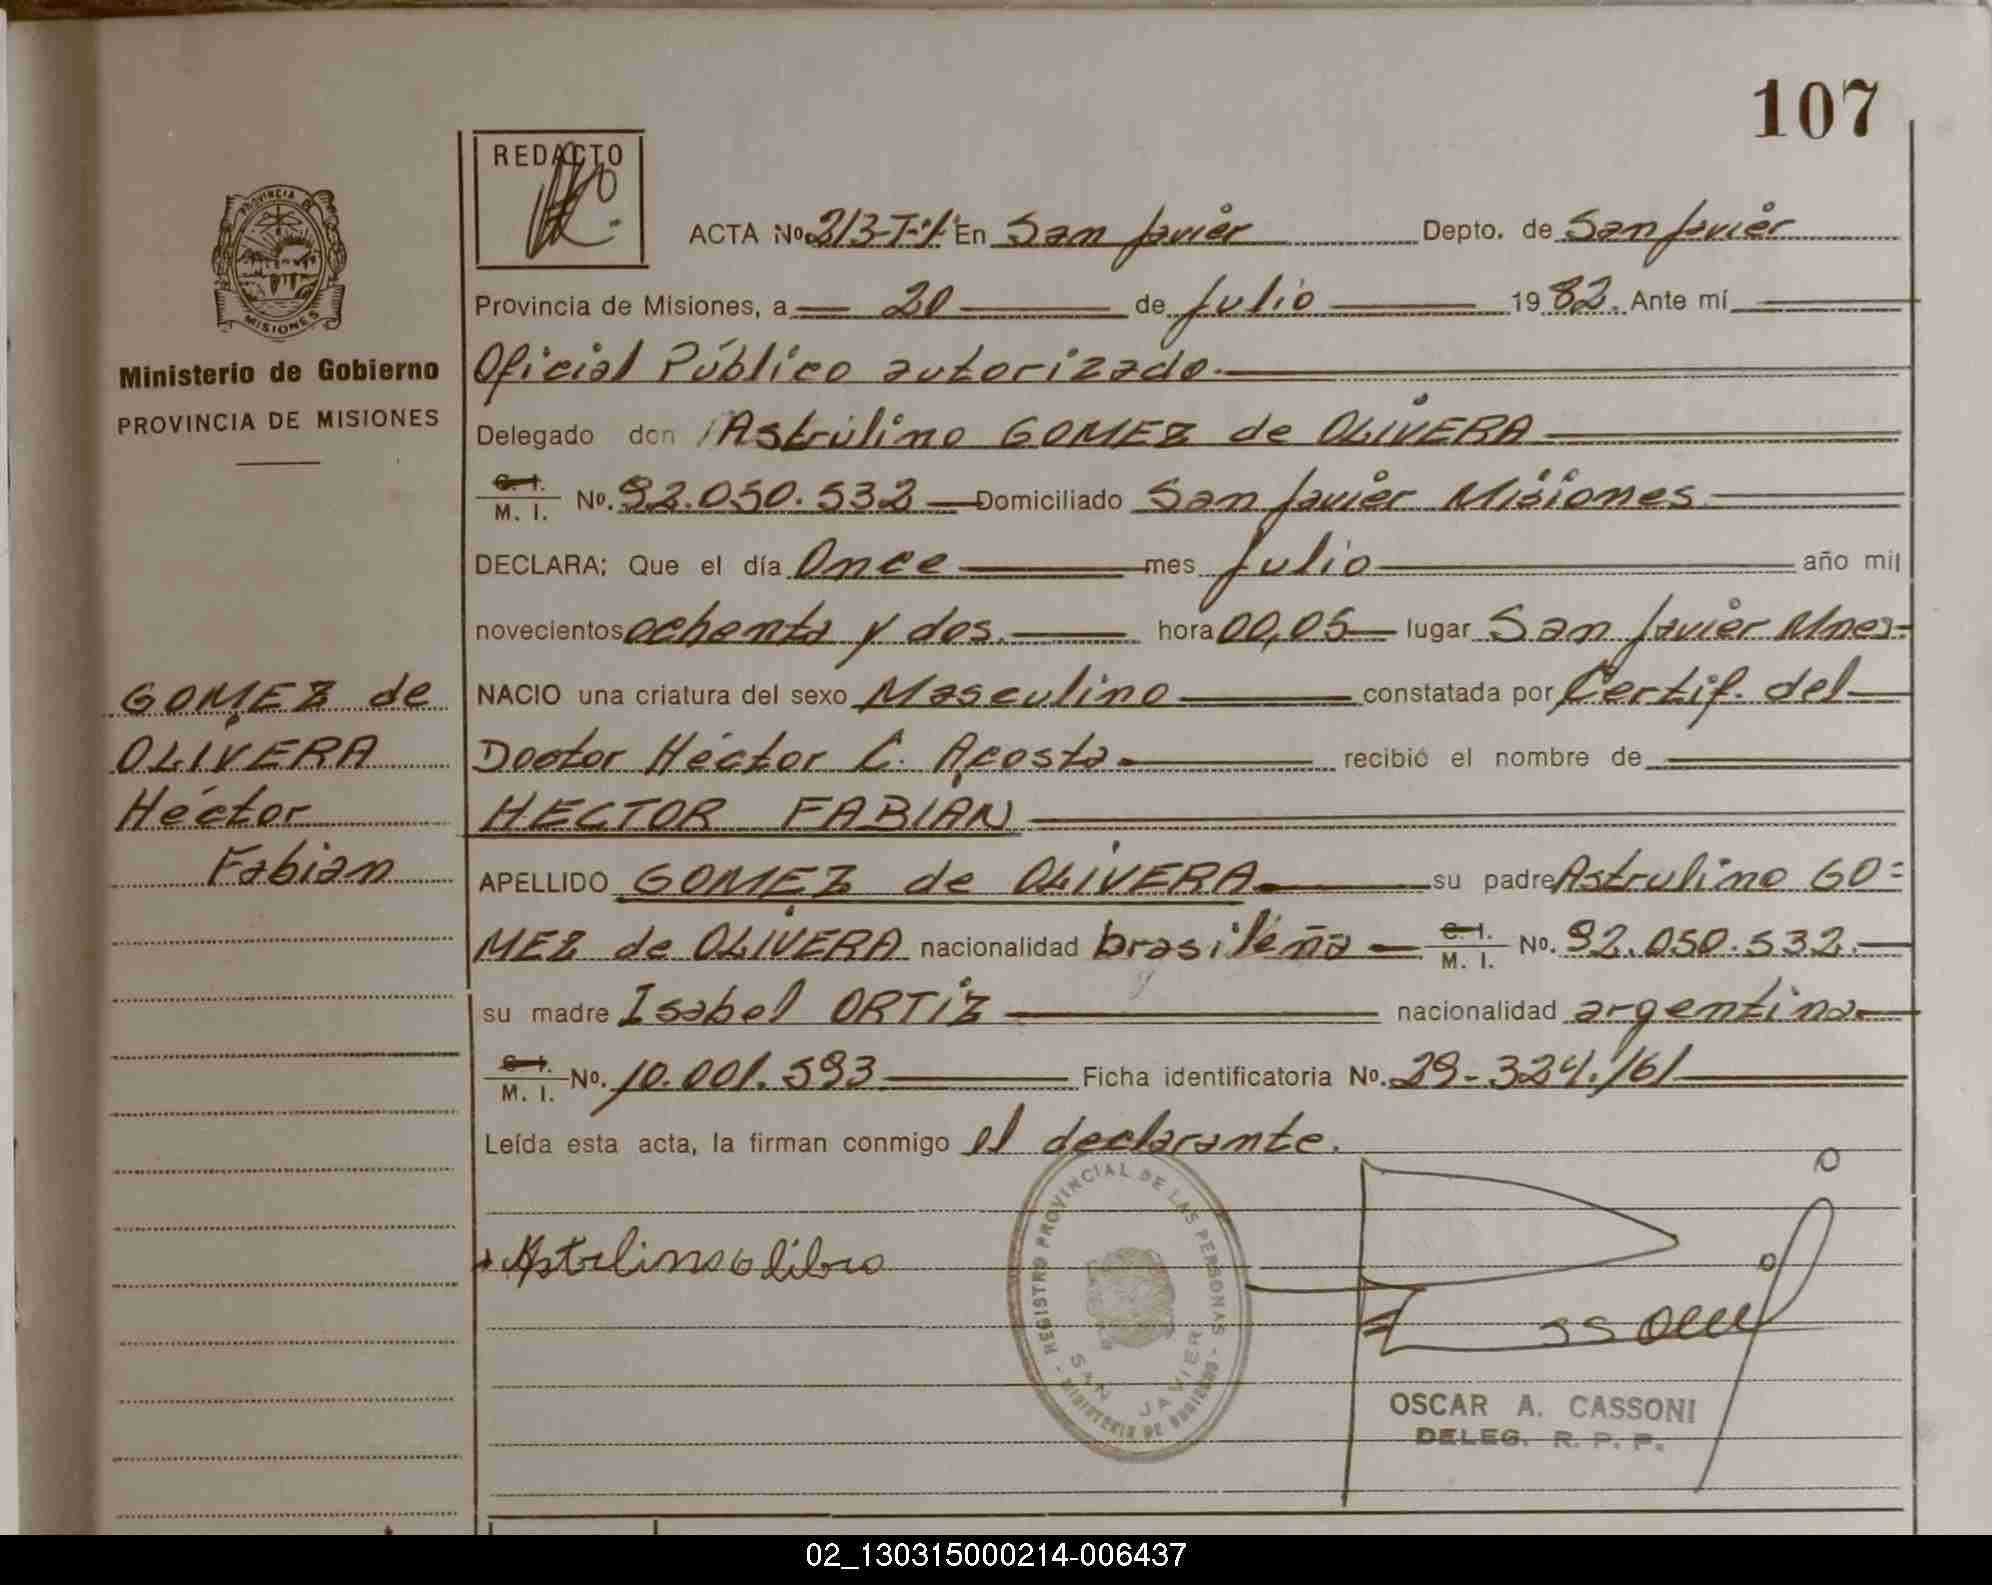 107
REDACTO
PROVINCIA D
MISIONES
ACTA No. 213-T-1º En San Javier Depto. de San Javier
Provincia de Misiones, a 20 de Julio 1982. Ante mí
Ministerio de Gobierno
PROVINCIA DE MISIONES
Oficial Público autorizado.
Delegado don Astrulino GOMEZ de OLIVERA
C. I.
M. I. No. 92.050.532 Domiciliado San Javier Misiones
DECLARA; Que el día Once mes Julio año mil
novecientos ochenta y dos. hora 00,05 lugar San Javier Mnes.
NACIO una criatura del sexo Masculino constatada por Certif. del
Doctor Héctor C. Acosta recibió el nombre de
HECTOR FABIAN
APELLIDO GOMEZ de OLIVERA su padre Astrulino GO=
MEZ de OLIVERA nacionalidad brasileña C. I.
M. I. No. 92.050.532.
su madre Isabel ORTIZ nacionalidad argentina
C. I.
M. I. No. 10.001.593 Ficha identificatoria No. 29-324./61
Leída esta acta, la firman conmigo el declarante.
GOMEZ de
OLIVERA
Héctor
Fabian
REGISTRO PROVINCIAL DE LAS PERSONAS
SAN JAVIER
MINISTERIO DE GOBIERNO
OSCAR A. CASSONI
DELEG. R. P. P.
02_130315000214-006437